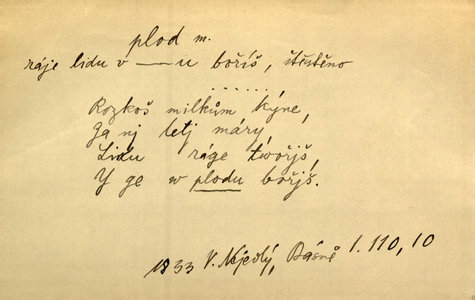 plod m.
ráje lidu v —— u boříš, štěstěno
......
Rozkoš milkům kýne,
Ga nj letj máry,
Lidu ráge twořjš,
Y ge w plodu bořjš.
1833 V. Nejedlý, Básně I. 110, 10